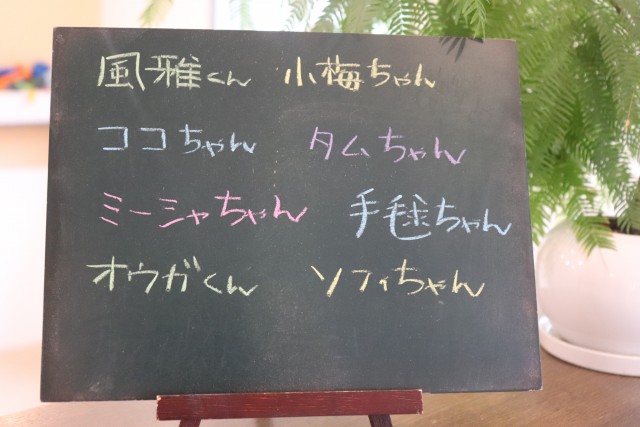 風雅くん 小梅ちゃん
ココちゃん タムちゃん
ミーシャちゃん 手毬ちゃん
オウガくん ソフィちゃん